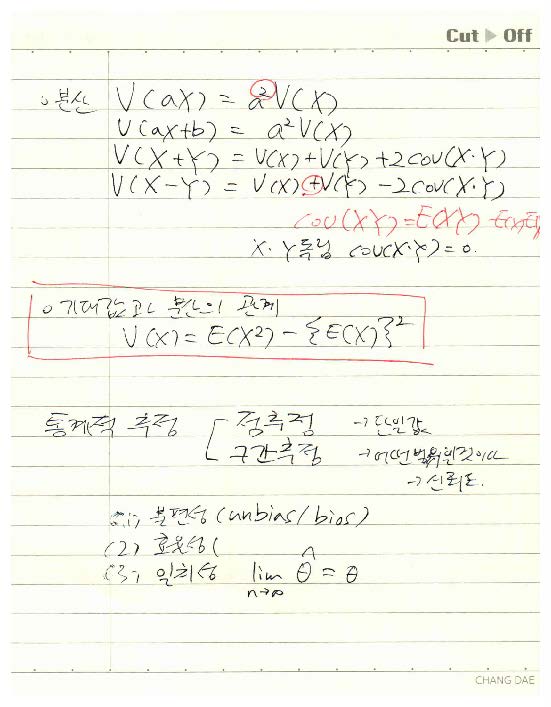 Cut ▶ Off
○ 분산 V(aX) = a²V(X)
V(aX+b) = a²V(X)
V(X+Y) = V(X)+V(Y)+2cov(X·Y)
V(X-Y) = V(X)+V(Y)-2cov(X·Y)
cov(XY)=E(XY)-E(X)E(
X·Y독립 cov(X·Y)=0.
○ 기대값과 분산의 관계
V(X)= E(X²) - {E(X)}²
통계적 추정 [ 점추정 →단일값
구간추정 →어떤범위
→신뢰도.
(1) 불편성 (unbias/bios)
(2) 효율성(
(3) 일치성 lim θ̂ = θ
n→∞
CHANG DAE